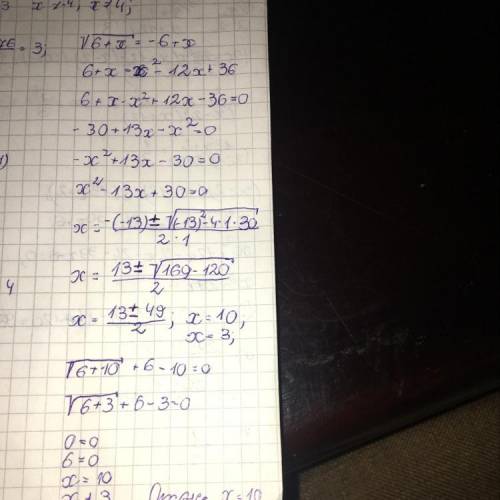 3 x>-4, x>4;
= 3;
√6+x = -6+x
6+x = x² - 12x + 36
6+x-x²+12x-36=0
-30+13x-x²=0
1)
-x²+13x-30=0
x²-13x+30=0
x = -(-13)±√(-13)²-4·1·30 / 2·1
4
x = 13±√169-120 / 2
x = 13±49 / 2; x=10,
x=3;
√6+10 + 6-10=0
√6+3 + 6-3=0
0=0
6=0
x=10
x≠3
x=10